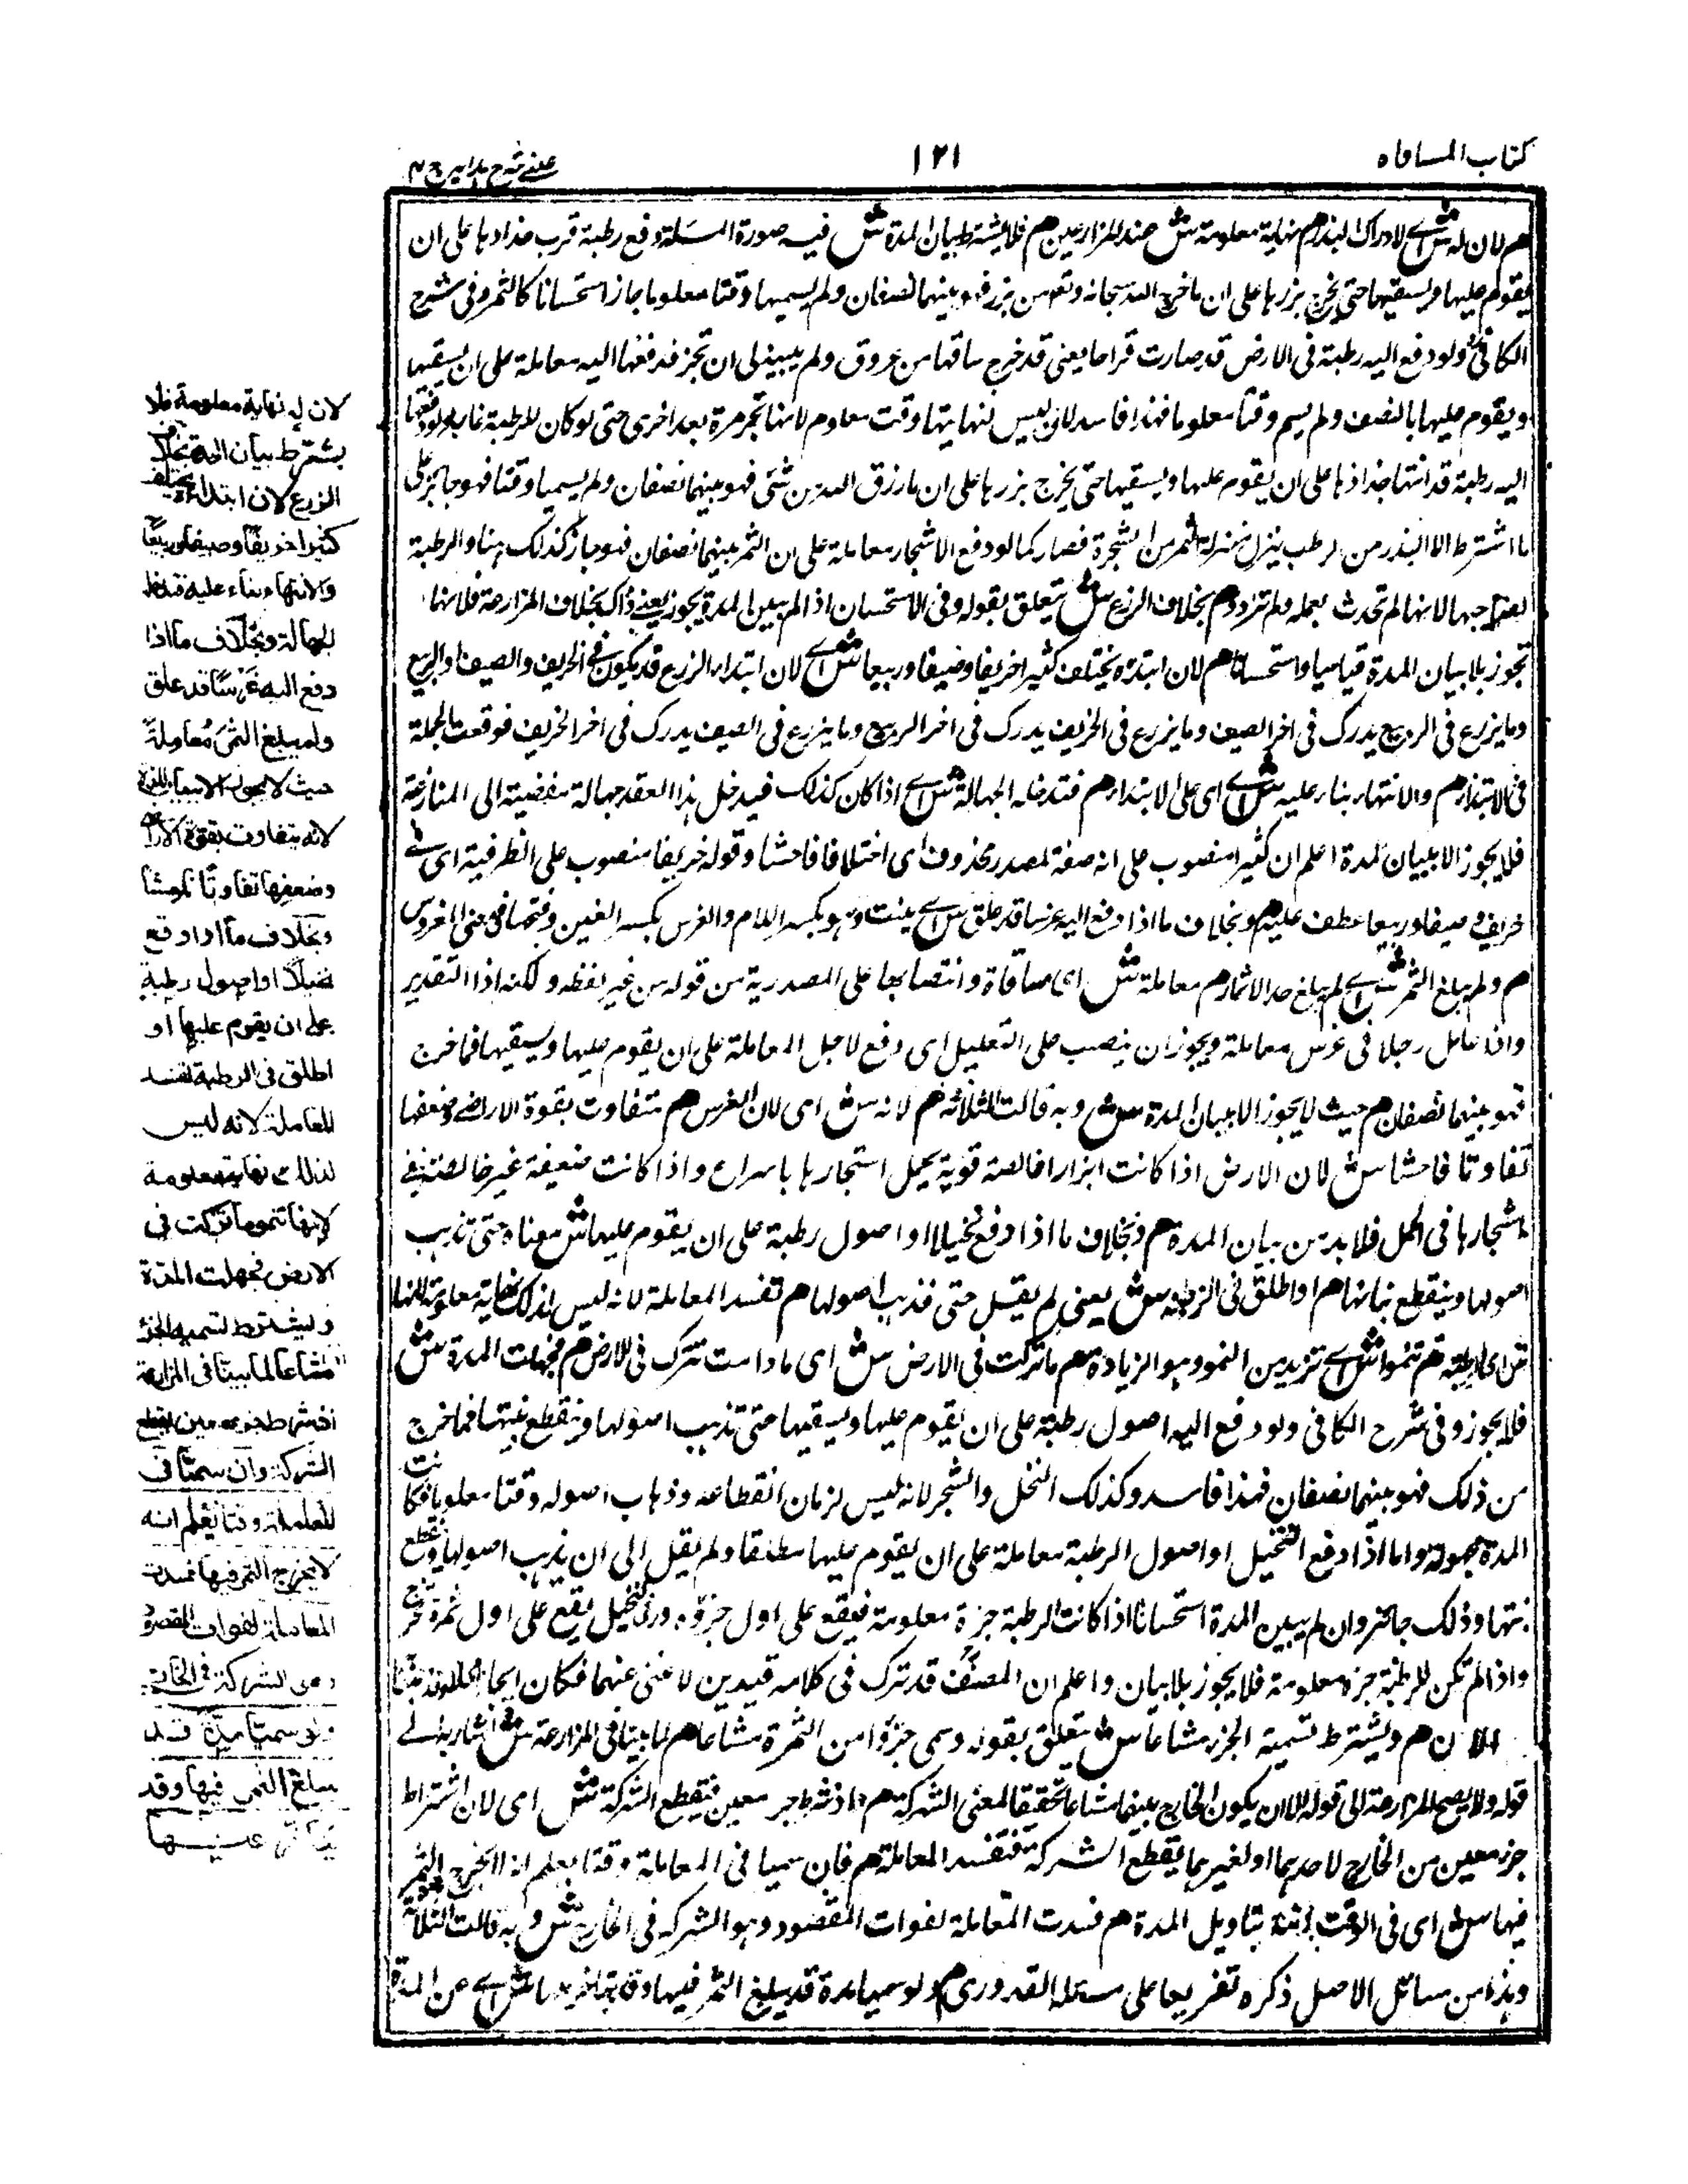 كتاب المساقاه
١٢١
عينى شرح هدايه ج ٤
م لان له ش اى لادراك البذر م نهاية معلومة ش عند المزارعين م فلا يشترط بيان المدة ش فيه صورة المسئلة دفع رطبة قرب جذاذها على ان
يقوم عليها ويسقيها حتى يخرج بزرها على ان ما خرج الله سبحانه وتعالى من بزر فهو بينهما نصفان ولم يسميها وقتا معلوما جاز استحسانا كالثمر وفى شرح
الكافى ولو دفع اليه رطبة فى الارض قد صارت قراحا يعنى قد خرج ساقها من عروق ولم يبينه الى ان تجز فدفعها اليه معاملة على ان يسقيها
ويقوم عليها بالنصف ولم يسم وقتا معلوما فهذا فاسد لانه ليس لنهايتها وقت معلوم لانها تجز مرة بعد اخرى حتى لو كان للرطبة غاية ولو دفعها
اليه رطبة قد انتها جذاذها على ان يقوم عليها ويسقيها حتى يخرج بزرها على ان ما رزق الله من شئى فهو بينهما نصفان ولم يسميا وقتا فهو جائز على
ما اشترط الا البذر من الرطب ينزل منزلة الثمر من الشجرة فصار كما لو دفع الاشجار معاملة على ان الثمر بينهما نصفان فهو جائز كذلك هنا والرطبة
لصاحبها لانها لم تحدث بعمله ولم تزدد م بخلاف الزرع ش يتعلق بقوله وفى الاستحسان اذا لم يبين المدة يجوز يعنى ذاك بخلاف المزارعة فلانها
تجوز بلا بيان المدة قياسيا واستحسانا م لان ابتدءه يختلف كثيرا خريفا وصيفا وربيعا ش اى لان ابتداء الزرع قد يكون فى الخريف والصيف والربيع
وما يزرع فى الربيع يدرك فى اخر الصيف وما يزرع فى الخريف يدرك فى اخر الربيع وما يزرع فى الصيف يدرك فى اخر الخريف فوقعت الجملة
فى الابتداء م والانتهاء بناء عليه ش اى على الابتداء م فتدخله الجهالة ش اى اذا كان كذلك فيدخل هذا العقد جهالة مفضية الى المنازعة
فلا يجوز الا ببيان المدة اعلم ان كثيرا منصوب على انه صفة لمصدر محذوف اى اختلافا فاحشا وقوله خريفا منصوب على الظرفية اى فى
خريف وصيفا وربيعا عطف عليه م وبخلاف ما اذا دفع اليه غرسا قد علق ش اى ينبت وهو بكسر اللام والغرس بكسر الغين وفتحها فى معنى المغروس
م ولم يبلغ الثمر ش اى لم يبلغ حد الاثمار م معاملة ش اى مساقاة وانتصابها على المصدرية من قوله من غير لفظه ولكنه اذا التقدير
واذا عامل رجلا فى غرس معاملة ويجوز ان ينصب على التعليل اى دفع لاجل المعاملة على ان يقوم عليها ويسقيها فما خرج
فهو بينهما نصفان م حيث لا يجوز الا ببيان المدة ش وبه قالت الثلاثة م لانه ش اى لان الغرس م يتفاوت بقوة الاراضى وضعفها
تفاوتا فاحشا ش لان الارض اذا كانت ابزارا خالصة قوية يحمل اشجارها باسراع واذا كانت ضعيفة غير خالصة
اشجارها فى الحمل فلا بد من بيان المدة م وبخلاف ما اذا دفع نخيلا او اصول رطبة على ان يقوم عليها ش معناه حتى تذهب
اصولها وينقطع نباتها م او اطلق فى الرطبة ش يعنى لم يقل حتى تذهب اصولها م تفسد المعاملة لانه ليس لذلك نهاية معلومة لانها
ش اى الرطبة م تنموا ش اى تزيد من النمو وهو الزيادة م ما تركت فى الارض ش اى ما دامت تترك فى الارض م فجهلت المدة ش
فلا يجوز وفى شرح الكافى ولو دفع اليه اصول رطبة على ان يقوم عليها ويسقيها حتى تذهب اصولها وينقطع نبتها فما خرج
من ذلك فهو بينهما نصفان فهذا فاسد وكذلك النخل والشجر لانه ليس لزمان انقطاعه وذهاب اصوله وقتا معلوما فكانت
المدة مجهولة واما اذا دفع النخيل او اصول الرطبة معاملة على ان يقوم عليها مطلقا ولم يقل الى ان يذهب اصولها وينقطع
نبتها وذلك جائز وان لم يبين المدة استحسانا اذا كانت الرطبة جزة معلومة فيقع على اول جزة وفى النخيل يقع على اول ثمرة تخرج
واذا لم تكن للرطبة جزة معلومة فلا يجوز بلا بيان واعلم ان المصنف قد ترك فى كلامه قيدين لا غنى عنهما فكان ايجازا
الان م ويشترط تسمية الجزء مشاعا ش يتعلق بقوله وسمى جزؤا من الثمرة مشاعا م لما بينا فى المزارعة ش اشار به الى
قوله ولا يصح المزارعة الى قوله الا ان يكون الخارج بينهما مشاعا تحقيقا لمعنى الشركة م اذ شرط جزء معين يقطع الشركة ش اى لان اشتراط
جزء معين من الخارج لاحدهما او لغيرهما يقطع الشركة فتفسد المعاملة م فان سميا فى المعاملة وقتا يعلم انه لا يخرج الثمر
فيها ش اى فى الوقت انثه بتاويل المدة م فسدت المعاملة لفوات المقصود وهو الشركة فى الخارج ش وبه قالت الثلاثة
وهذا من مسائل الاصل ذكره تفريعا على مسئلة القدورى م ولو سميا مدة قد يبلغ الثمر فيها وقد يتاخر عنها ش اى عن المدة
لان له نهاية معلومة فلا
يشترط بيان المدة بخلاف
الزرع لان ابتداءه يختلف
كثيرا خريفًا وصيفا وربيعًا
والانتهاء بناء عليه فتدخله
الجهالة وبخلاف ما اذا
دفع اليه غَرسًا قد علق
ولم يبلغ الثمرَ مُعاملةً
حيث لا يجوز الا ببيان المدة
لانه يتفاوت بقوة الاراضى
وضعفها تفاوتًا فاحشا
وبخلاف ما اذا دفع
نخيلًا او اصول رطبة
على ان يقوم عليها او
اطلق فى الرطبة تفسد
المعاملة لانه ليس
لذلك نهاية معلومة
لانها تنمو ما تركت فى
الارض فجهلت المدة
ويشترط تسمية الجزء
مشاعا لما بينا فى المزارعة
اذ شرط جزء معين يقطع
الشركة وان سميا فى
المعاملة وقتا يُعْلَم انه
لا يخرج الثمر فيها فسدت
المعاملة لفوات المقصود
وهى الشركة فى الخارج
ولو سميا مدة قد
يبلغ الثمر فيها وقد
يتأخر عنها